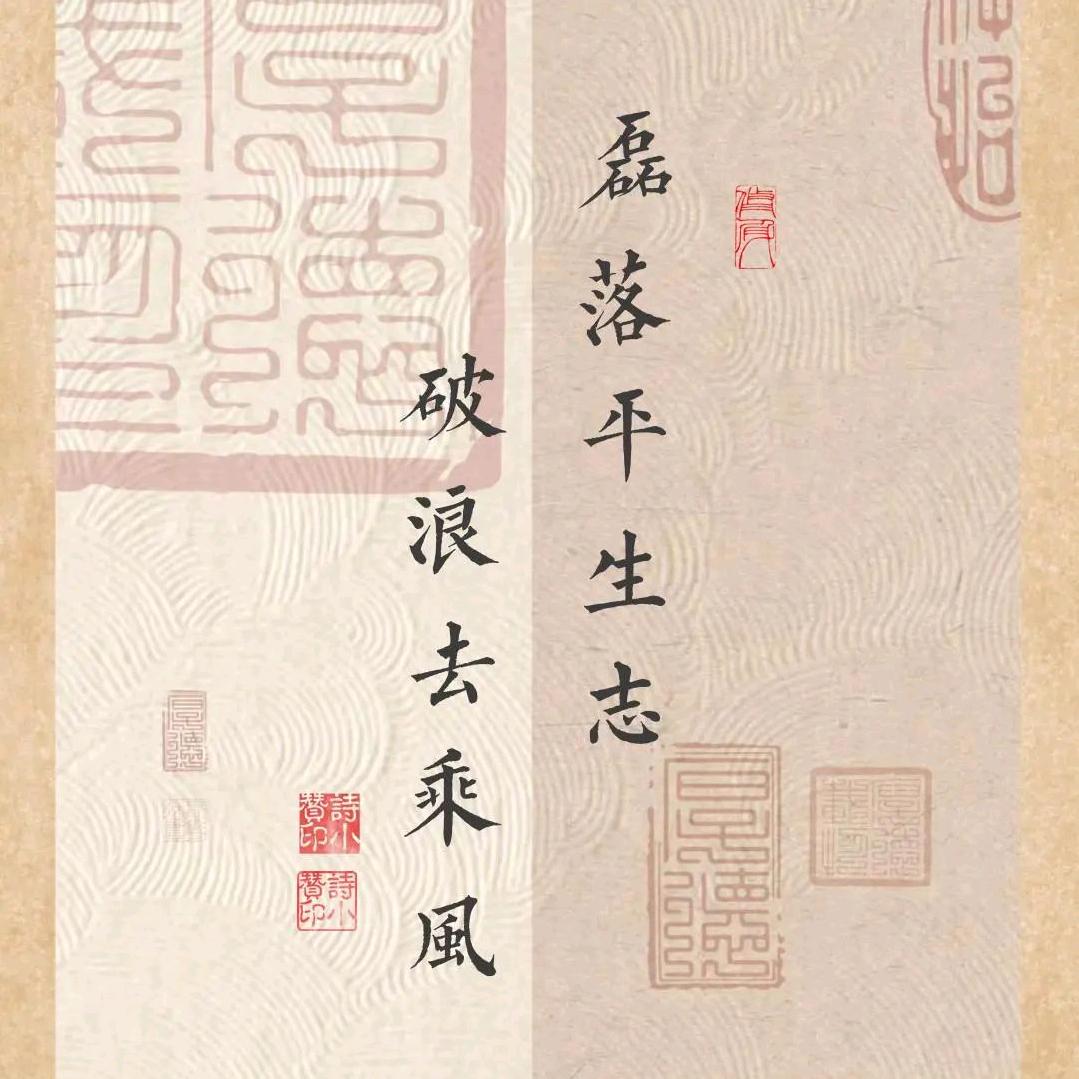 磊落平生志
破浪去乘風
詩小
贊印
詩小
贊印